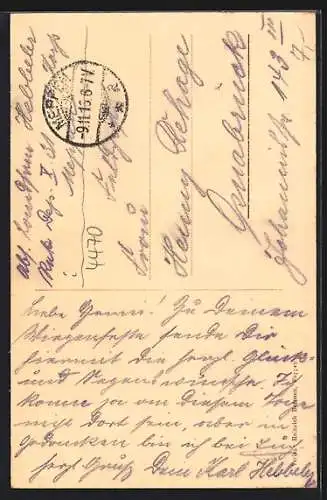 Abs. Landstrm Hebbeler
Rek. Dep. I
MEPPEN
-9.11.16.6-7V
4470
Fräul.
Henny Rehage
Osnabrück
Johannisstr 143 III
Liebe Henni! Zu Deinem
Wiegenfeste sende Dir
hiermit die herzl. Glück-
und Segenswünsche. Ich
konne ja an diesem Tage
nicht dort sein, aber in
Gedanken bin ich bei Euch
herzl Gruß Dein Karl Hebbeler